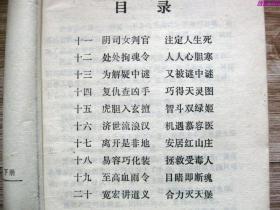 目录
十一 阴司女判官 注定人生死
十二 处处拘魂令 人人心胆寒
十三 为解疑中谜 又被谜中谜
十四 复仇查凶手 巧得天灵图
十五 虎胆入玄擅 智斗双绿姬
十六 济世流浪汉 机遇慕容医
十七 离开是非地 安居红山庄
十八 易容巧化装 拯救受毒人
十九 至高血雨令 目睹即断魂
二十 宽宏讲道义 合力灭天堡
下册